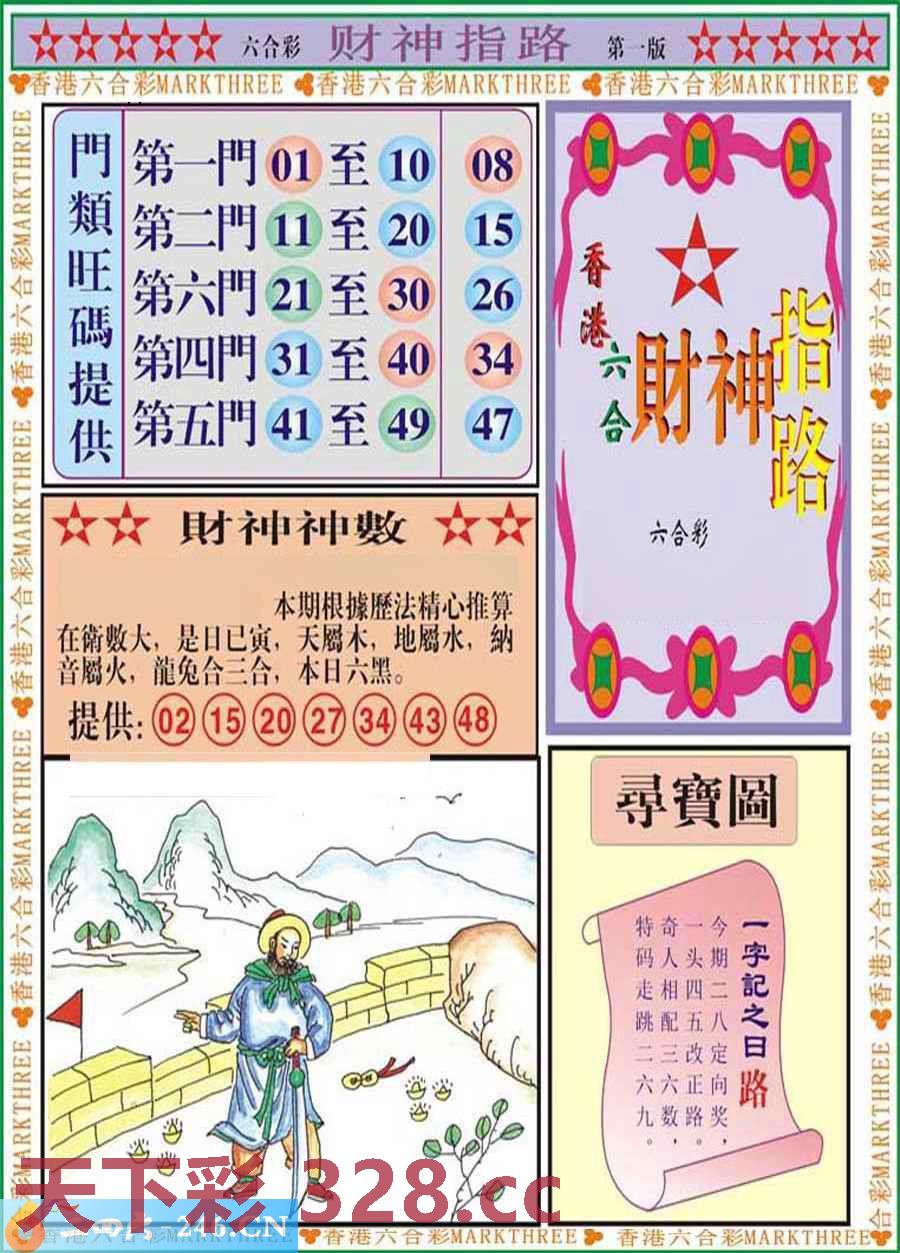 六合彩 财神指路 第一版
香港六合彩MARKTHREE 香港六合彩MARKTHREE 香港六合彩MARKTHREE
門類旺碼提供
第一門 01 至 10 08
第二門 11 至 20 15
第六門 21 至 30 26
第四門 31 至 40 34
第五門 41 至 49 47
香港六合
財神
指路
六合彩
財神神數
本期根據歷法精心推算
在衛數大，是日已寅，天屬木，地屬水，納
音屬火，龍兔合三合，本日六黑。
提供: 02 15 20 27 34 43 48
尋寶圖
一字記之曰 路
今期二八定向奖，
一头四五改正路。
奇人相配三六数，
特码走跳二六九。
天下彩 328.cc
246.CN
香港六合彩MARKTHREE 香港六合彩MARKTHREE 香港六合彩MARKTHREE